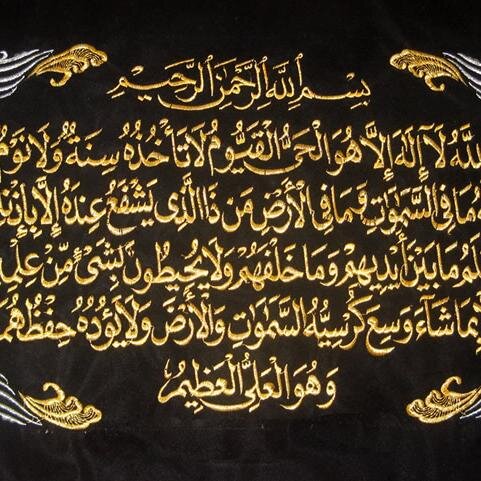 بِسْمِ اللَّهِ الرَّحْمَنِ الرَّحِيمِ
للَّهُ لَآ إِلَهَ إِلَّا هُوَ الْحَيُّ الْقَيُّومُ لَا تَأْخُذُهُ سِنَةٌ وَلَا نَوْمٌ
هُ مَا فِي السَّمَوَتِ وَمَا فِي الْأَرْضِ مَن ذَا الَّذِي يَشْفَعُ عِندَهُ إِلَّا بِإِذْنِهِ
لَمُ مَا بَيْنَ أَيْدِيهِمْ وَمَا خَلْفَهُمْ وَلَا يُحِيطُونَ بِشَيْءٍ مِّنْ عِلْمِ
بِمَا شَآءَ وَسِعَ كُرْسِيُّهُ السَّمَوَتِ وَالْأَرْضَ وَلَا يَؤُدُهُ حِفْظُهُمَا
وَهُوَ الْعَلِيُّ الْعَظِيمُ